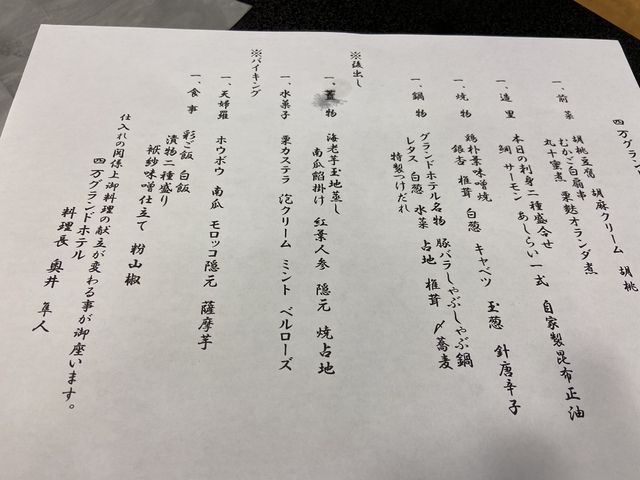 四万グラン
一、前菜 胡桃豆腐 胡麻クリーム 胡桃
むかご白扇串 栗麩オランダ煮
丸十蜜煮
一、造里 本日の刺身二種盛合せ 自家製昆布正油
鯛 サーモン あしらい一式
一、焼物 鶏朴葉味噌焼 玉葱 針唐辛子
銀杏 椎茸 白葱 キャベツ
一、鍋物 グランドホテル名物 豚バラしゃぶしゃぶ鍋
レタス 白葱 水菜 占地 椎茸 〆蕎麦
特製つけだれ
※後出し
一、蓋物 海老芋玉地蒸し
南瓜餡掛け 紅葉人参 隠元 焼占地
一、水菓子 栗カステラ 泡クリーム ミント ベルローズ
※バイキング
一、天婦羅 ホウボウ 南瓜 モロッコ隠元 薩摩芋
一、食事 彩ご飯 白飯
漬物二種盛り
袱紗味噌仕立て 粉山椒
仕入れの関係上御料理の献立が変わる事が御座います。
四万グランドホテル
料理長 奥井 隼人